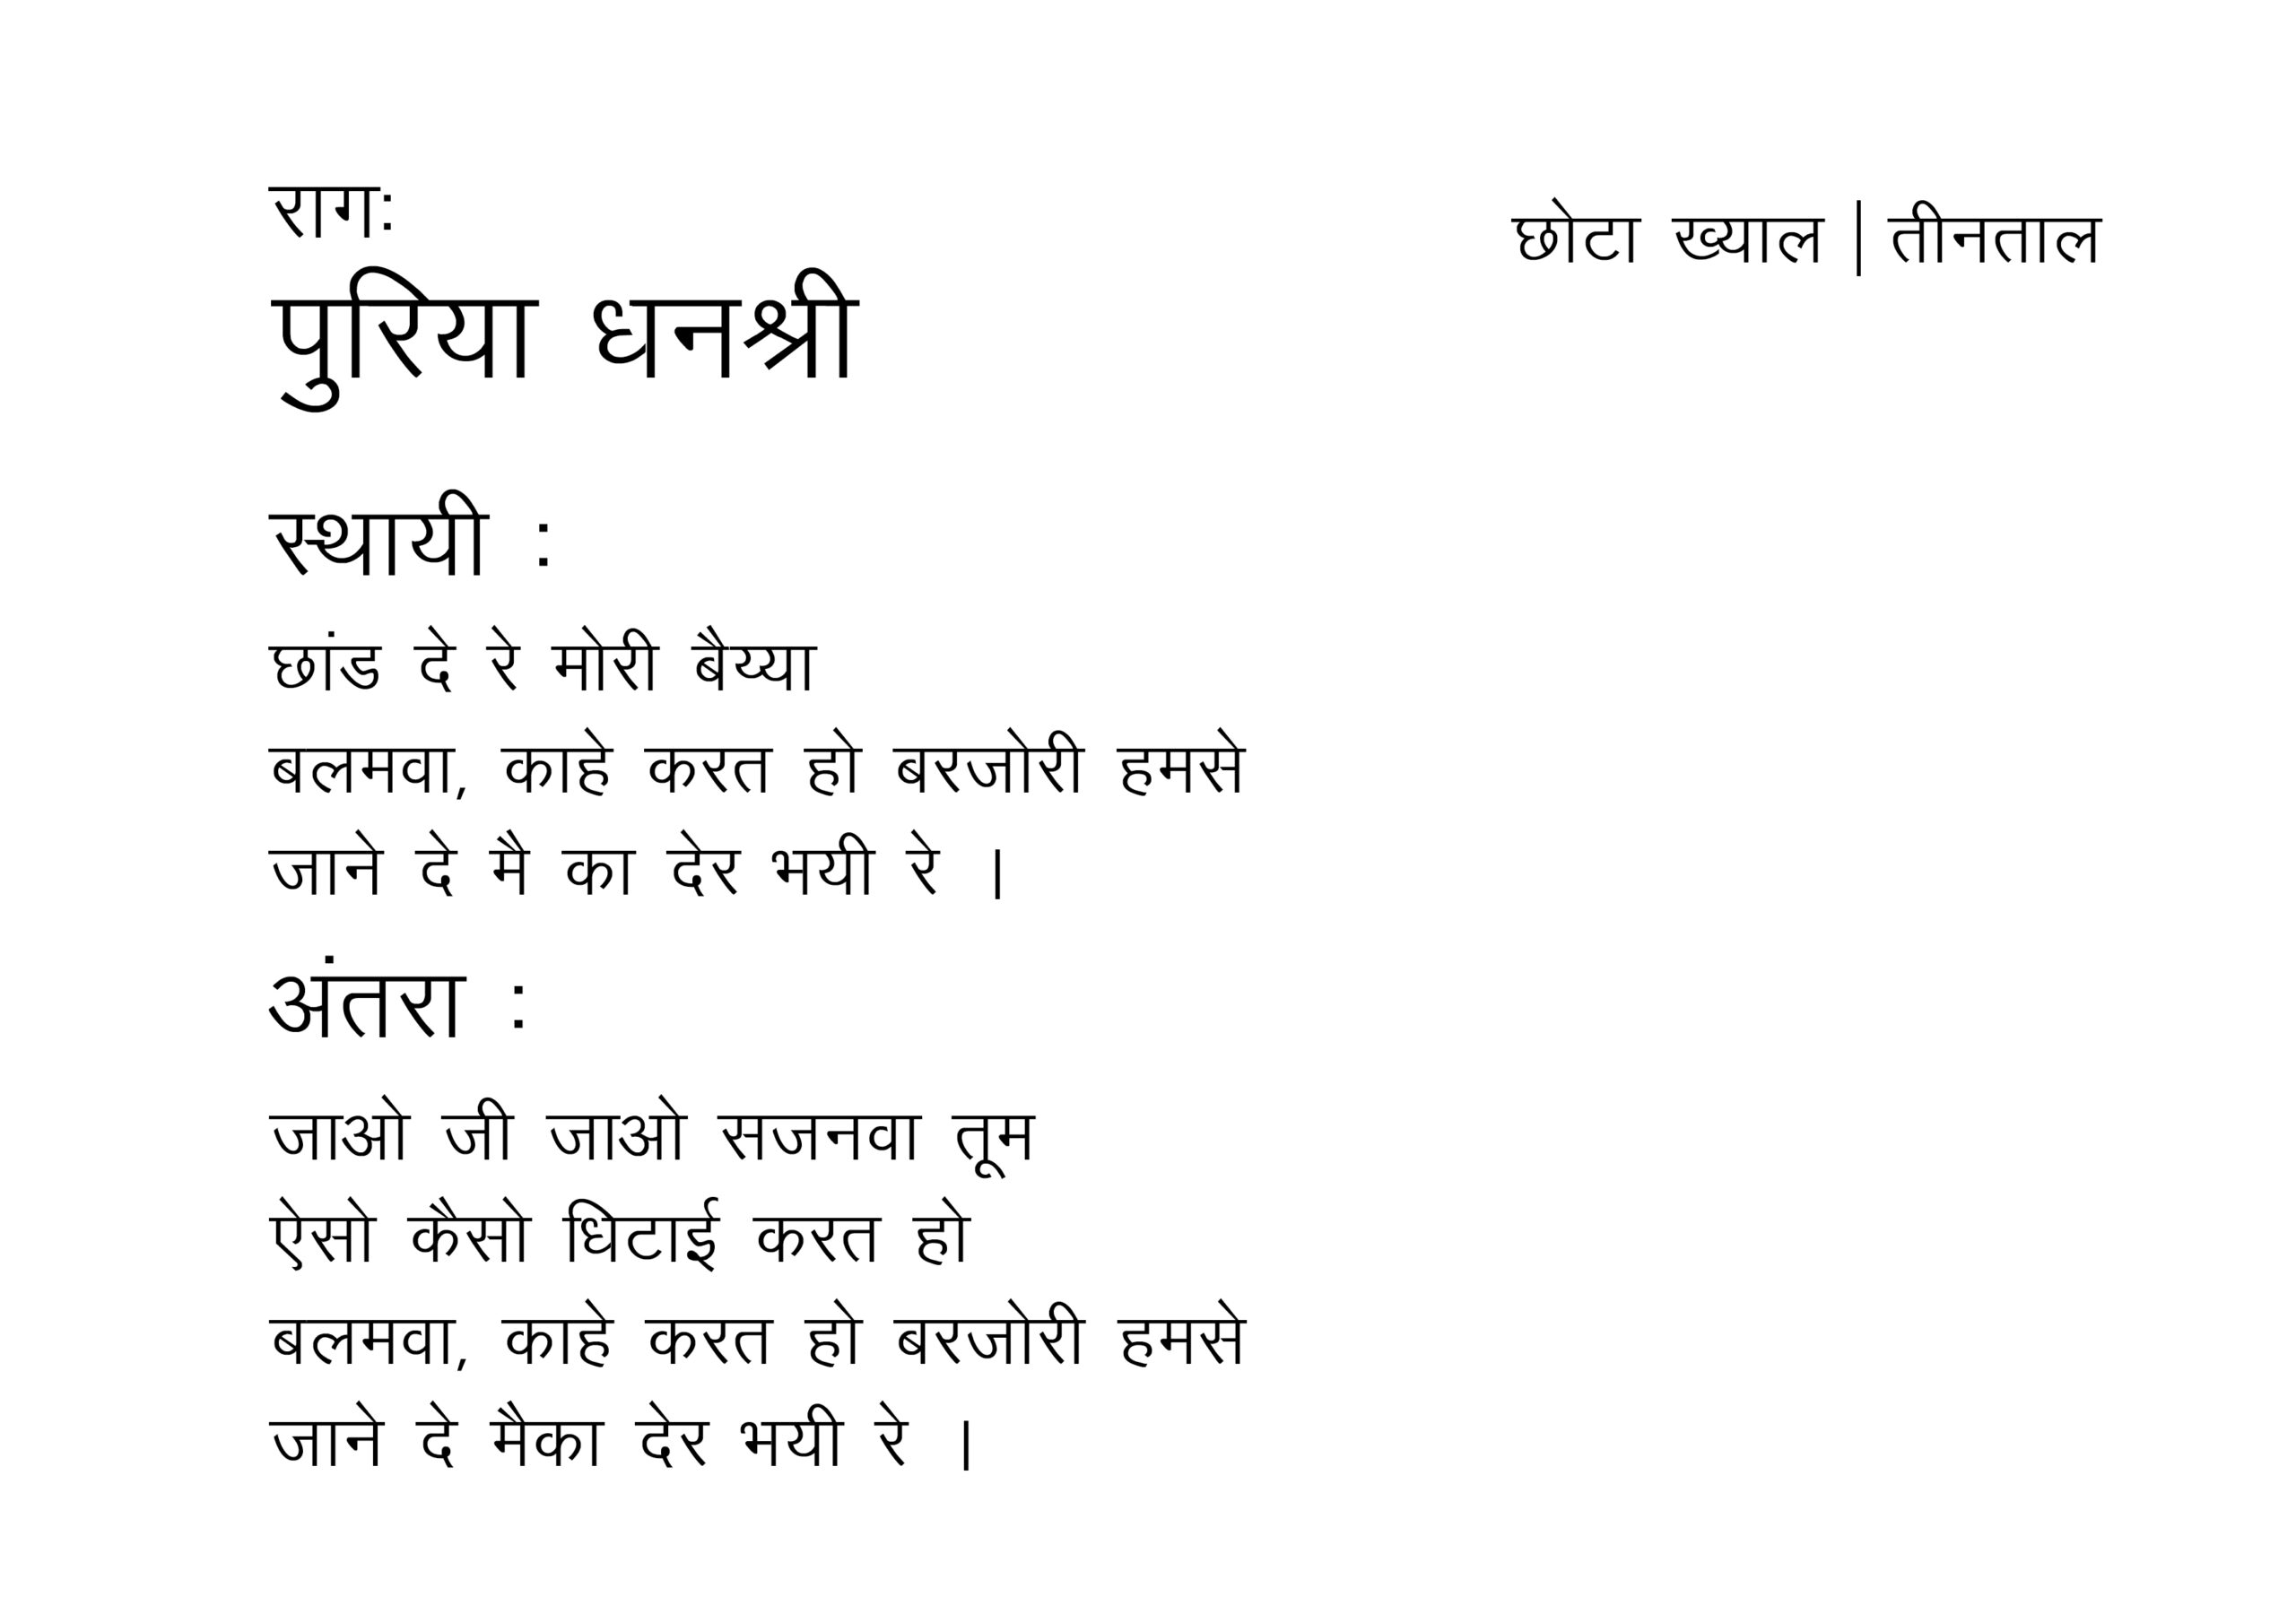 रागः
छोटा ख्याल | तीनताल
पुरिया धनश्री
स्थायी :
छांड दे रे मोरी बैय्या
बलमवा, काहे करत हो बरजोरी हमसे
जाने दे मै का देर भयी रे ।
अंतरा :
जाओ जी जाओ सजनवा तूम
ऐसो कैसो धिटाई करत हो
बलमवा, काहे करत हो बरजोरी हमसे
जाने दे मैका देर भयी रे ।